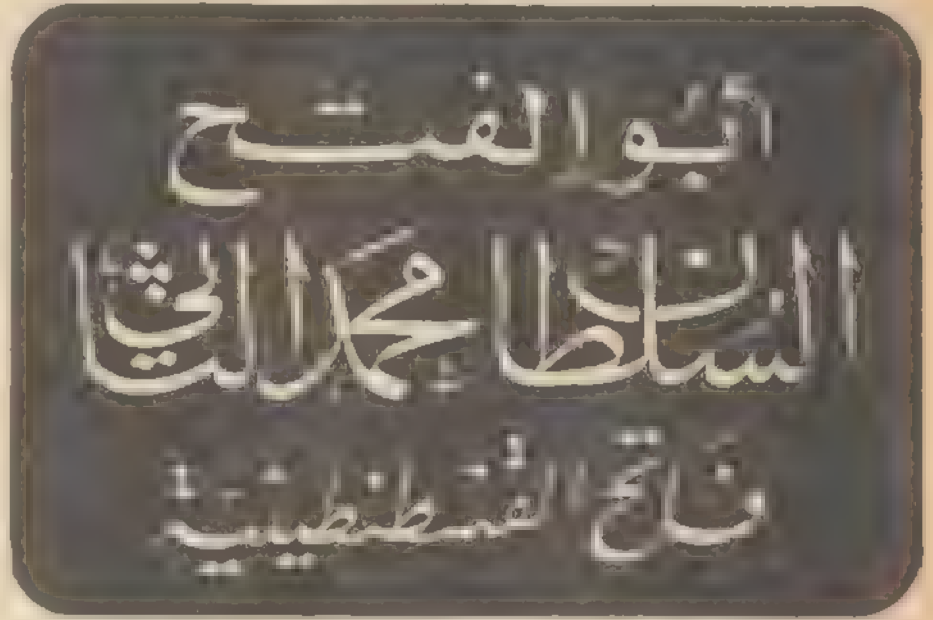 أبو الفتح
السلطان محمد الثاني
فاتح القسطنطينية